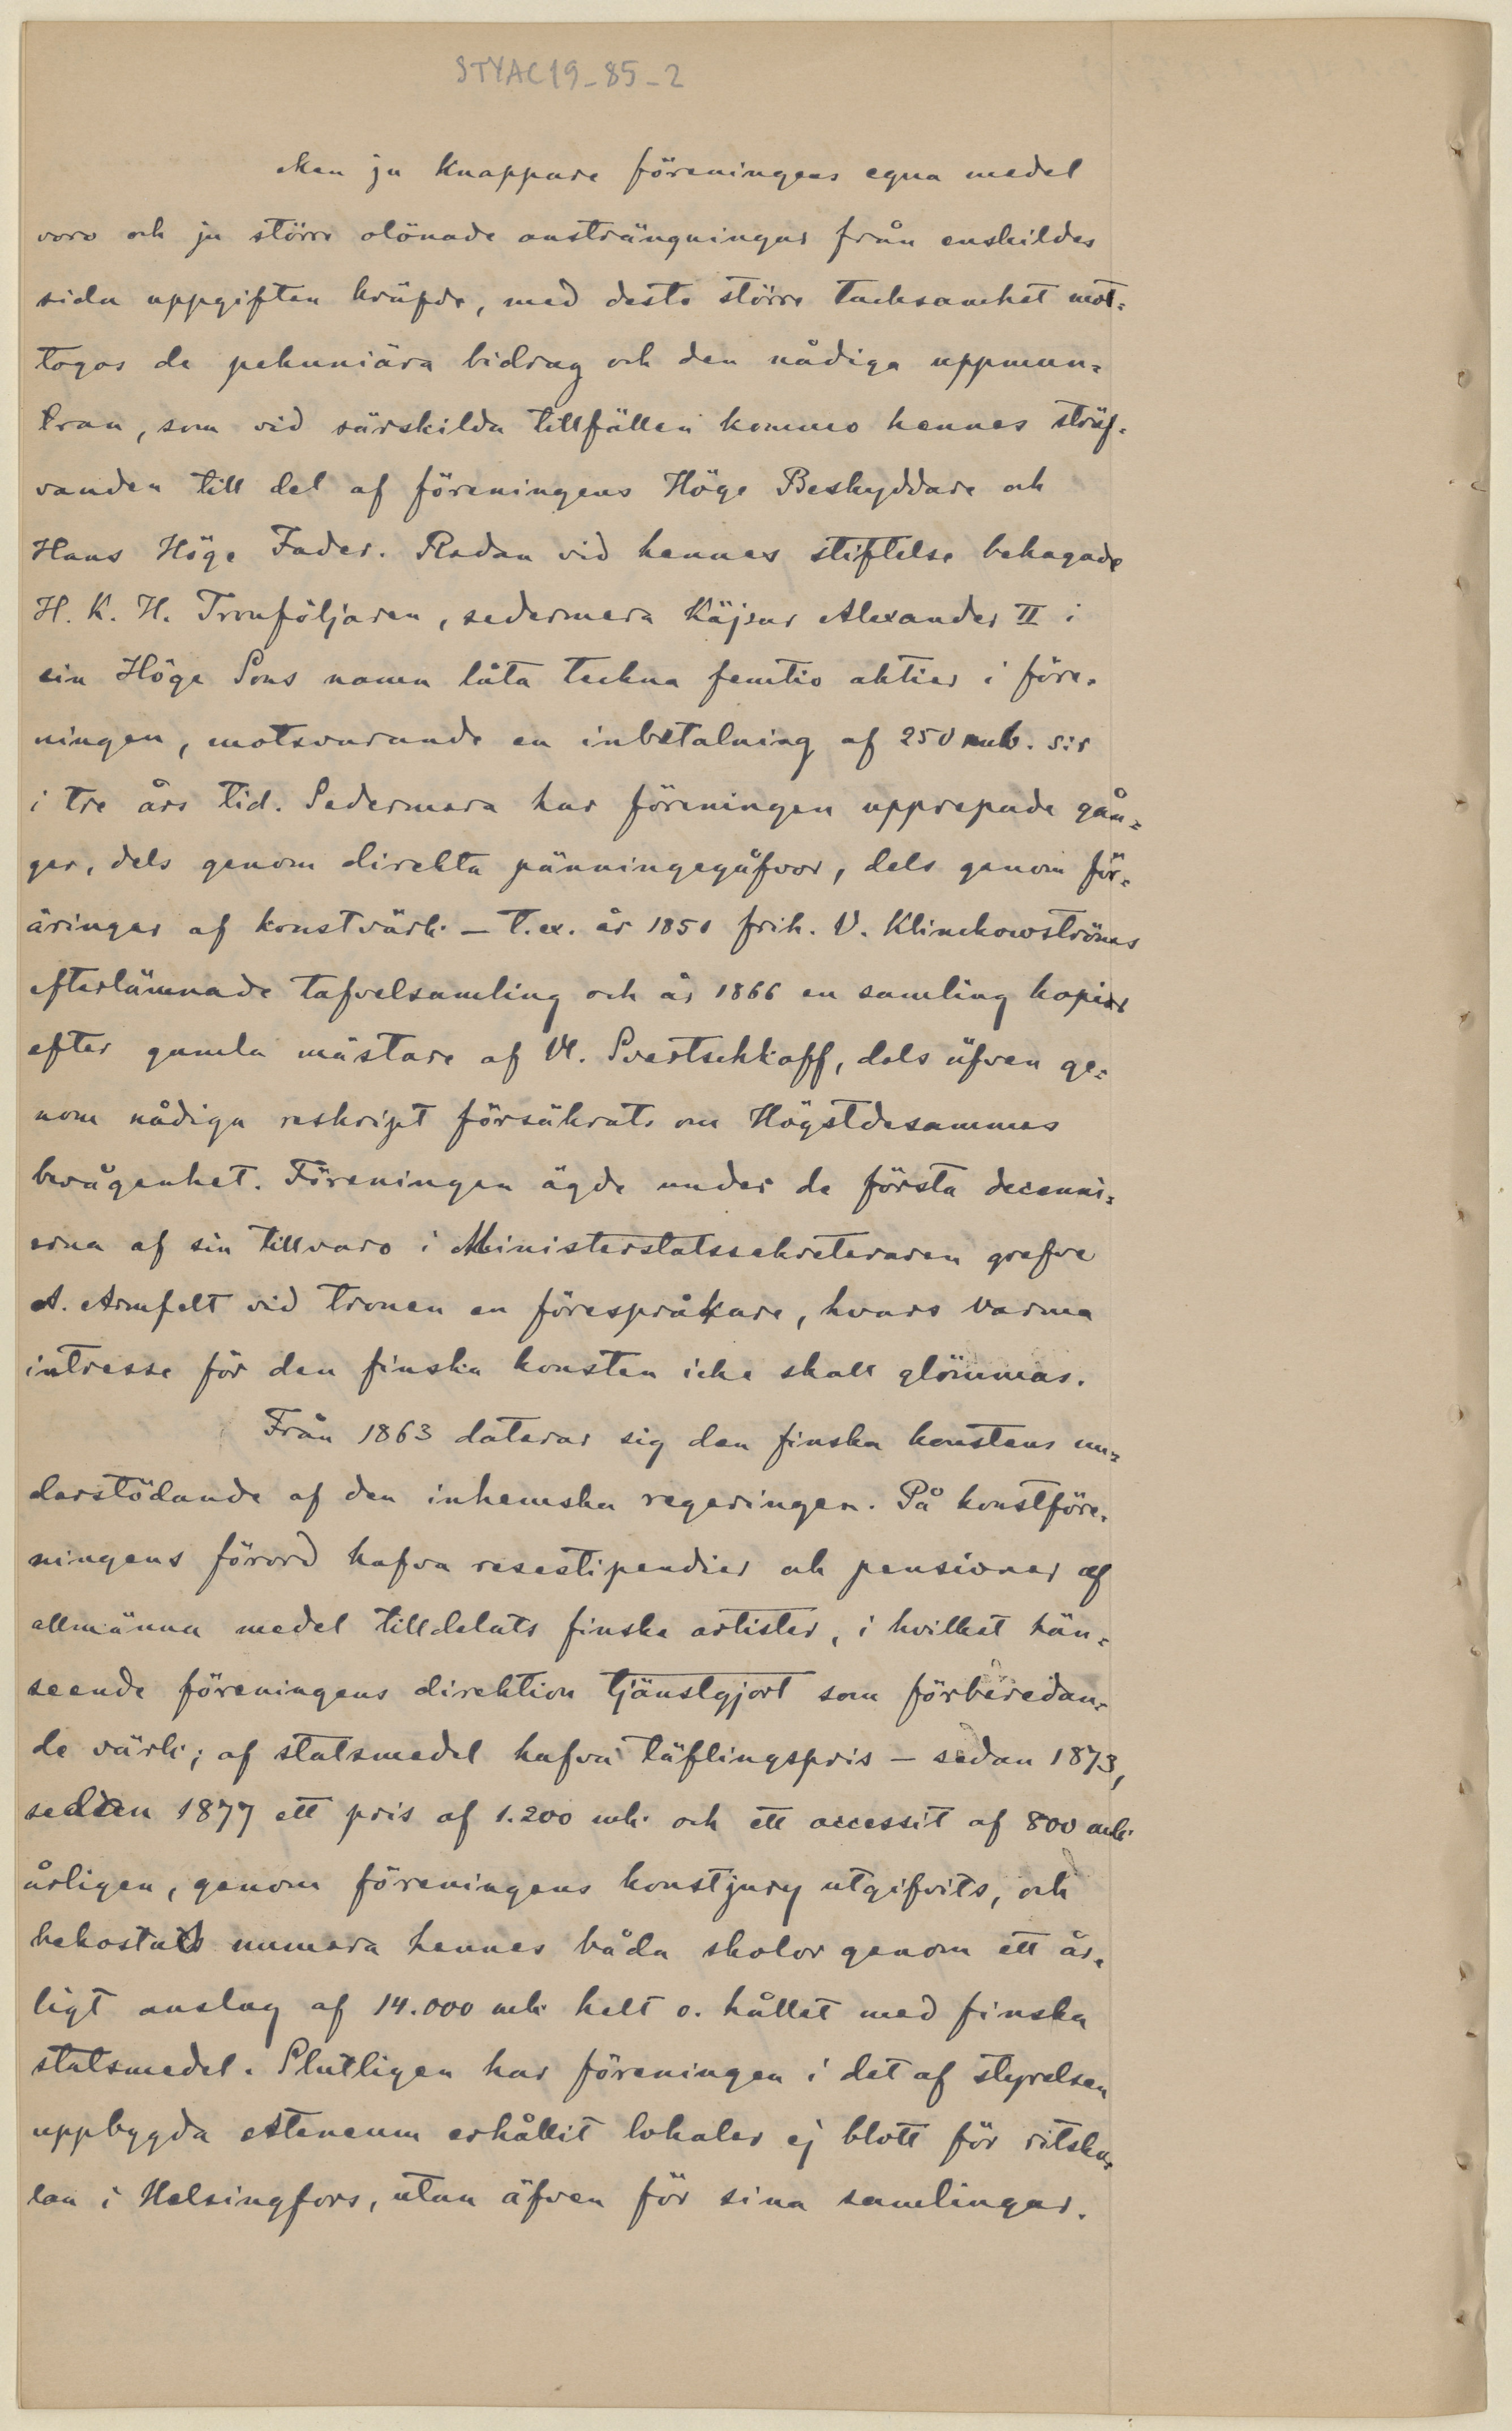 STYAC19_85_2
Men ju knappare föreningens egna medel
voro och ju större olönade ansträngningar från enskildas
sida uppgiften kräfde, med desto större tacksamhet mot=
togos de pekuniära bidrag och den nådiga uppmun=
tran, som vid särskilda tillfällen kommo hennes sträf-
vanden till del af föreningens Höge Beskyddare och
Hans Höge Fader. Redan vid hennes stiftelse behagade
H. K. H. Tronföljaren, sedermera Käjsar Alexander II i
sin Höge Sons namn låta teckna femtio aktier i före-
ningen, motsvarande en inbetalning af 250 rub. s:r
i tre års tid. Sedermera har föreningen upprepade gån=
ger, dels genom direkta pänningegåfvor, dels genom för=
äringar af konstvärk – t.ex. år 1851 frih. V. Klinckowströms
efterlämnade tafvelsamling och år 1866 en samling kopior
efter gamla mästare af Vl. Svertschkoff, dels äfven ge=
nom nådiga reskript försäkrats om Högstdesammes
bevågenhet. Föreningen ägde under de första decenni=
erna af sin tillvaro i Ministerstatssekreteraren grefve
A. Armfelt vid tronen en förespråkare, hvars varma
intresse för den finska konsten icke skall glömmas.
Från 1863 daterar sig den finska konstens un=
derstödande af den inhemska regeringen. På konstföre-
ningens förord hafva resestipendier och pensioner af
allmänna medel tilldelats finska artister, i hvilket hän=
seende föreningens direktion tjänstgjort som förberedan-
de värk; af statsmedel hafva täflingspris – sedan 1873,
sedan 1877 ett pris af 1.200 mk och ett accessit af 800 mk
årligen, genom föreningens konstjury utgifvits, och
bekostats numera hennes båda skolor genom ett år-
ligt anslag af 14.000 mk helt o. hållet med finska
statsmedel. Slutligen har föreningen i det af styrelsen
uppbygda Ateneum erhållit lokaler ej blott för ritsko-
lan i Helsingfors, utan äfven för sina samlingar.